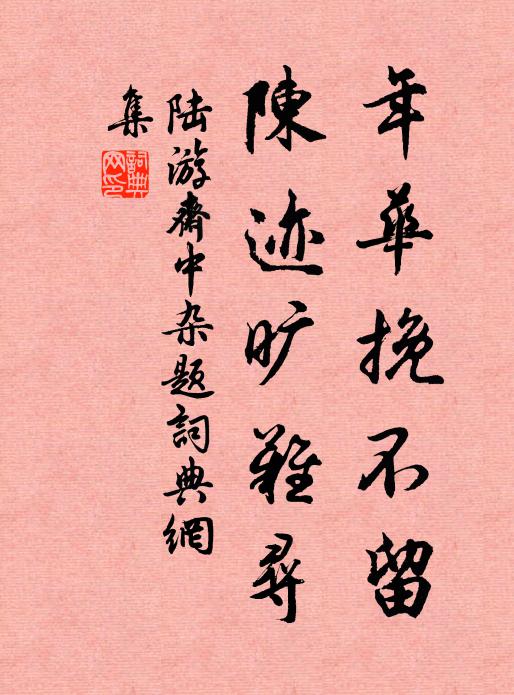 年華挽不留
陳迹旷難尋
陆游齋中杂题詞典網
集
詞典
网印